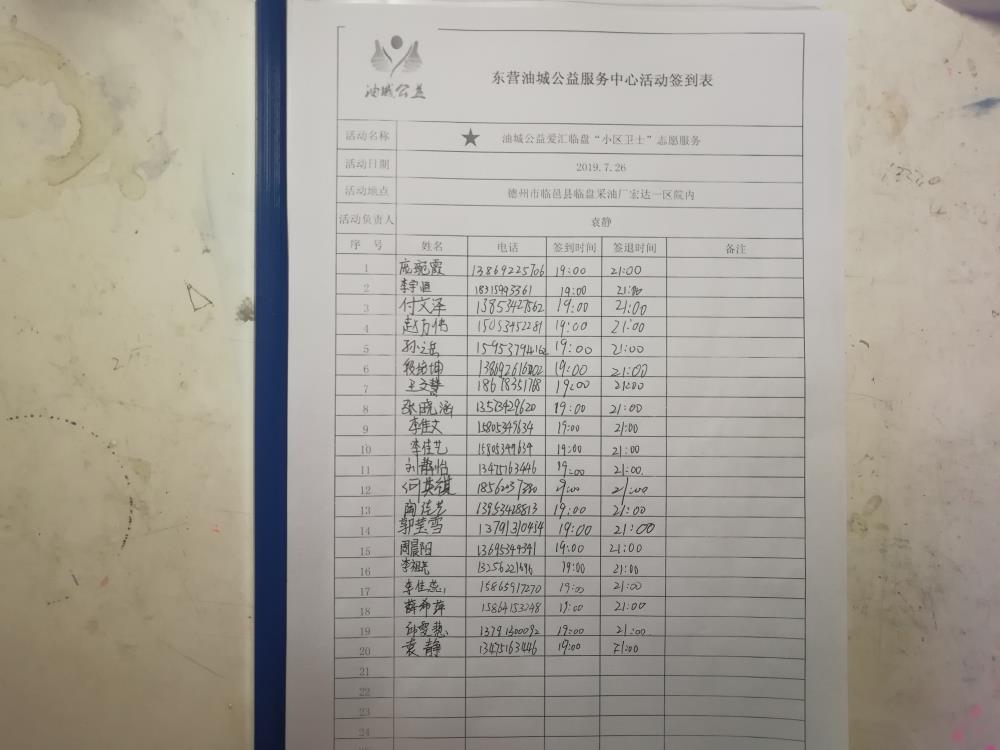 油城公益
东营油城公益服务中心活动签到表
活动名称 ★ 油城公益爱汇临盘“小区卫士”志愿服务
活动日期 2019.7.26
活动地点 德州市临邑县临盘采油厂宏达一区院内
活动负责人 袁静
序 号 姓名 电话 签到时间 签退时间 备注
1 庞琬霞 13869225706 19:00 21:00
2 李宇恒 18315995361 19:00 21:00
3 付文泽 13853427562 19:00 21:00
4 15053452281 19:00 21:00
5 19:00 21:00
6 19:00 21:00
7 王文慧 19:00 21:00
8 张晓涵 13573429620 19:00 21:00
9 李佳文 15805349634 19:00 21:00
10 李佳艺 15805349634 19:00 21:00
11 刘静怡 13475163446 19:00 21:00.
12 何英禛 21:00
13 陶佳艺 13953428813 19:00 21:00
14 郭莹雪 13791310454 19:00 21:00
15 周晨阳 13695349341 19:00 21:00
16 19:00 21:00
17 李佳蕊 15865917270 19:00 21:00
18 薛希萍 15864153248 19:00 21:00
19 邱雯慧 13791300092 19:00 21:00
20 袁静 13475163446 19:00 21:00
21
22
23
24